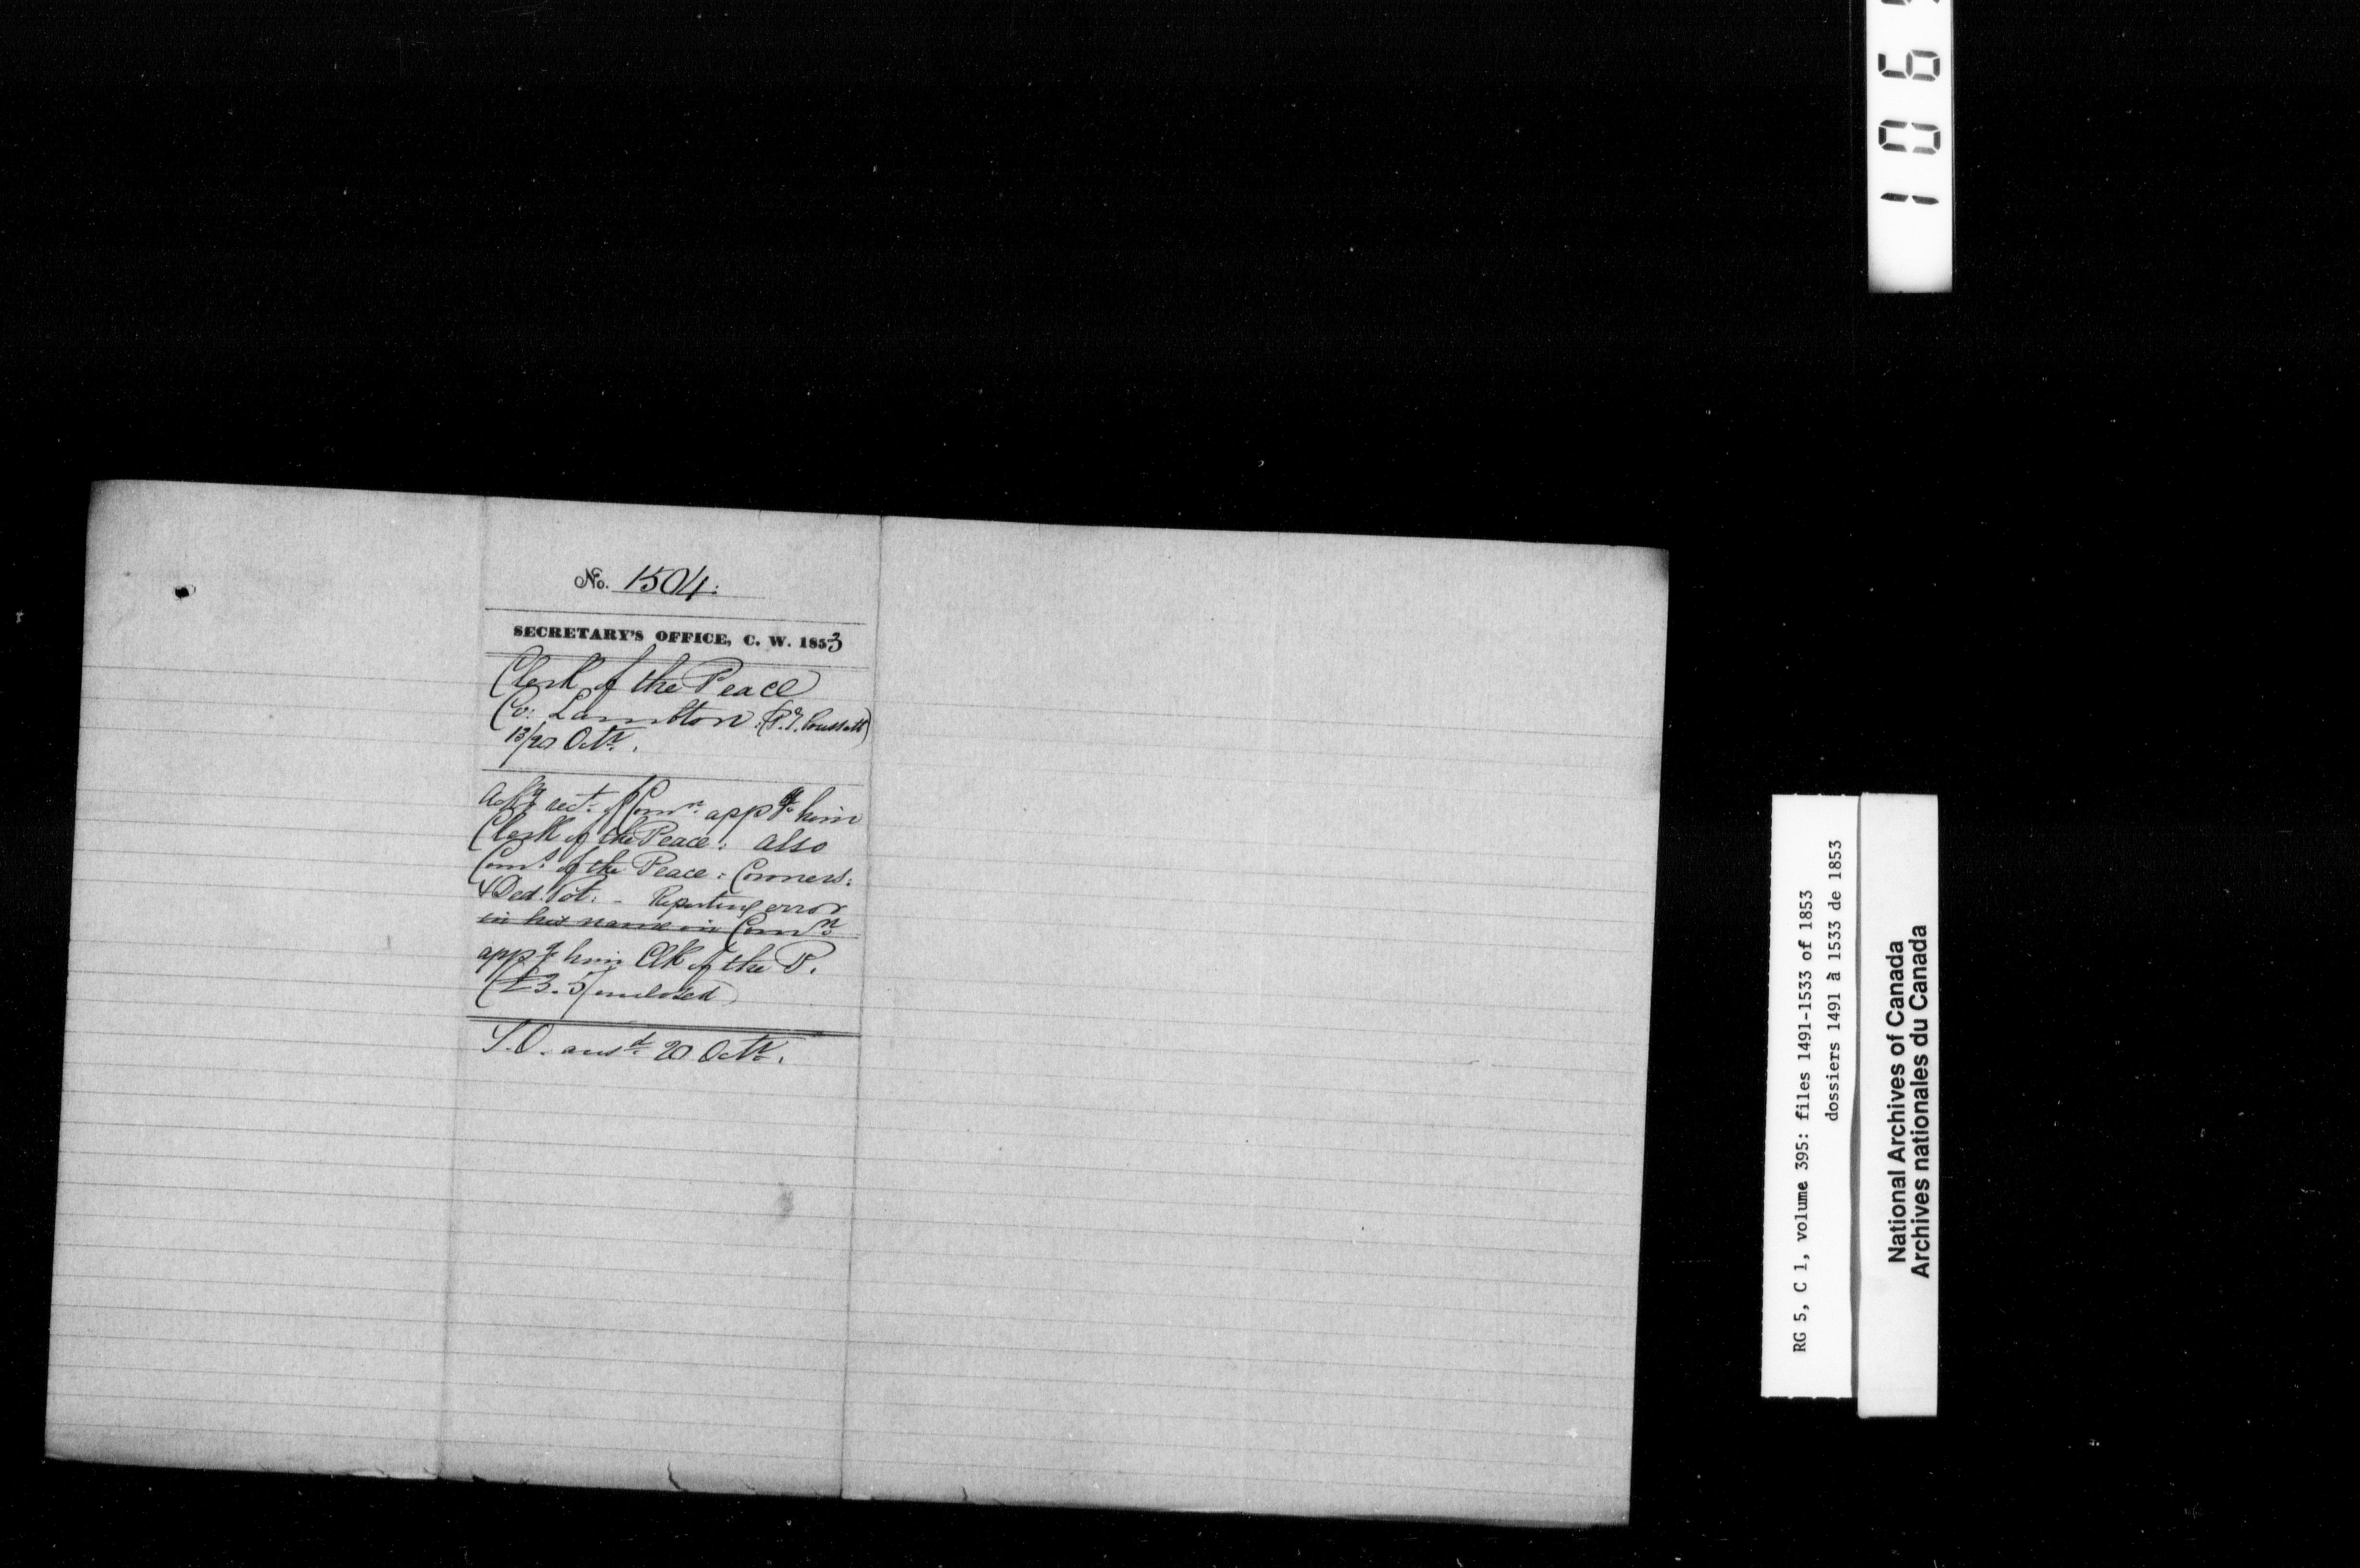 No. 1504.
SECRETARY'S OFFICE, C. W. 1853
Clerk of the Peace
Co: Lambton. (P. T. Poussett)
13/20 Octr.
Ackg rect. of Comn. appg him
Clerk of the Peace: also
Comn of the Peace: Coroners:
& Ded. Pot: - Reporting error
in his name in Comn
appg him Clk of the P.
(£3.5/ enclosed)
S.O. ansd. 20 Octr.
106
RG 5, C 1, volume 395: files 1491-1533 of 1853
dossiers 1491 à 1533 de 1853
National Archives of Canada
Archives nationales du Canada